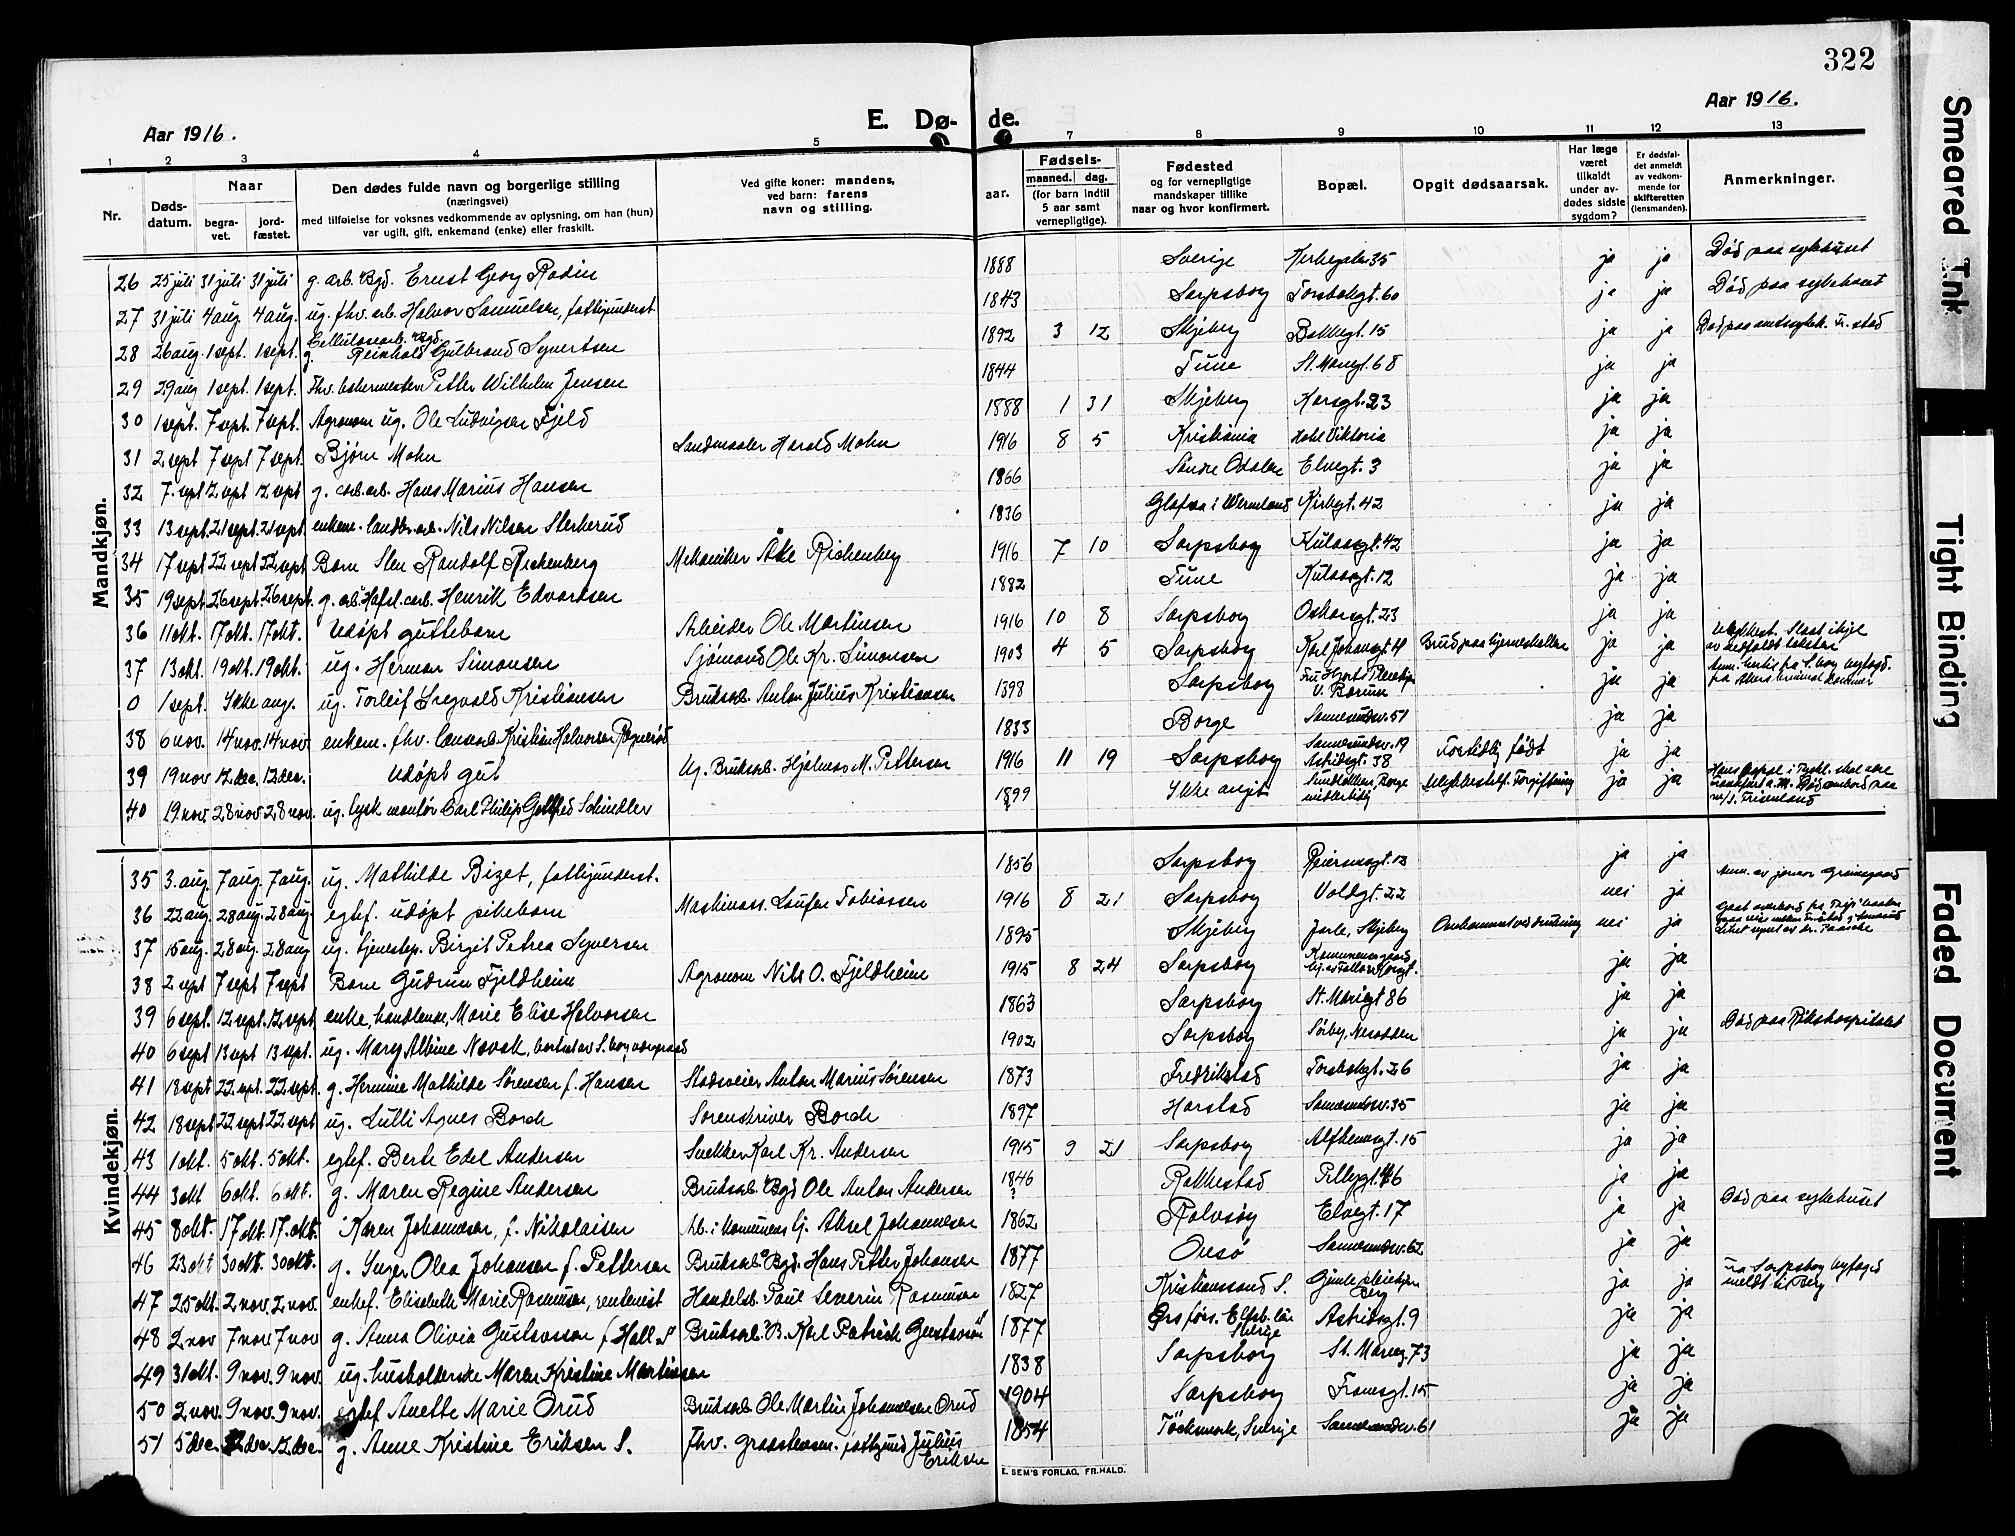 322
Aar 1916.
E. Dø- de.
Aar 1916.
1 2 3 4 5 7 8 9 10 11 12 13
Nr.
Døds-datum.
Naar
begra-vet.
jord-fæstet.
Den dødes fulde navn og borgerlige stilling
(næringsvei)
med tilføielse for voksnes vedkommende av oplysning, om han (hun)
var ugift, gift, enkemand (enke) eller fraskilt.
Ved gifte koner: mandens,
ved barn: farens
navn og stilling.
aar.
Fødsels-
maaned. dag.
(for barn indtil
5 aar samt
vernepligtige).
Fødested
og for vernepligtige
mandskaper tillike
naar og hvor konfirmert.
Bopæl.
Opgit dødsaarsak.
Har læge
været
tilkaldt
under av-
dødes sidste
sygdom?
Er dødsfal-
det anmeldt
av vedkom-
mende for
skifteretten
(lensmanden).
Anmerkninger.
Mandkjøn.
26 25 juli 31 juli 31 juli g. arb. Bgd. Ernst Georg Rodin 1888 Sverige 35 ja ja Død paa sykehuset
27 31 juli 4 aug. 4 aug. ug. fhv. arb. Halvor Samuelsen, fattigunderst 1843 Sarpsborg Torsbekgt. 60 ja ja Død paa sykehuset
28 26 aug. 1 sept. 1 sept. Cellulosearb. Bgd. g. Reinhold Gulbrand Syvertsen 1892 3 12 Skjeberg 15 ja ja Død paa amtssykeh. Fr.stad
29 29 aug 1 sept. 1 sept. Fhv. Petter Wilhelm Jensen 1844 Tune St. Mariegt. 68 ja ja
30 1 sept. 7 sept. 7 sept. Agronom ug. Ole Ludvigsen Fjeld 1888 1 31 Skjeberg Korsgt. 23 ja ja
31 2 sept 7 sept 7 sept. Bjørn Mohn Landmaaler Harald Mohn 1916 8 5 Kristiania Hotel Viktoria ja ja
32 7. sept 12 sept 12 sept g. carb. arb. Hans Marius Hansen 1866 Søndre Odalen Elvegt. 3 ja ja
33 13 sept. 21 sept. 21 sept. enkem. landbr. arb. Nils Nilsen Sterkerud 1836 Glafva i Wermland Kirkegt. 42 ja ja
34 17 sept 22 sept 22 sept Barn Sten Randolf Richenberg Mekaniker Åke Richenberg 1916 7 10 Sarpsborg Kulaasgt. 42 ja ja
35 19 sept. 26 sept. 26 sept. g. arb. Hafsl. carb. Henrik Edvardsen 1882 Tune Kulaasgt. 12 ja ja
36 11 okt. 17 okt. 17 okt. Udøpt guttebarn Arbeider Ole Martinsen 1916 10 8 Sarpsborg Oskarsgt. 23 ja ja
37 13 okt. 19 okt. 19 okt. ug. Herman Simonsen Sjømand Ole Kr. Simonsen 1903 4 5 Sarpsborg Karl Johansgt Brud paa hjerneskallen ja ja Slaat ihjel
av
0 1 sept. Ikke ang. ug. Torleif Sregvald Kristiansen Bruksarb. Anton Julius Kristiansen 1898 Sarpsborg V. Bærum ja ja
38 6 nov. 14 nov. 14 nov. enkem. fhv. Kristian Halvorsen 1833 Borge Sannesundsv. 51 ja ja
39 19 nov 12 dec. 12 dec. Udøpt gut Ug. Bruksarb. Hjalmar M. Pettersen 1916 11 19 Sarpsborg Sannesundsv. 19
Astridsgt. 38 Fortidlig født ja ja
40 19. nov 28 nov 28 nov. ug. tysk montør Carl Philip Gottfred Schindler 1899
? Ikke angit Borge
midlertidig Forgiftning ja ja
Kvindekjøn.
35 3. aug. 7 aug. 7 aug. ug. Mathilde Bizet, fattigunderst. 1856 Sarpsborg 13 ja ja
36 22 aug. 28 aug. 28 aug egtef. udøpt pikebarn Maskinass. Laufer Tobiassen 1916 8 21 Sarpsborg Voldgt. 22 nei ja
37 15 aug. 28 aug 28 aug ug. tjenestep. Birgit Petrea Syversen 1895 Skjeberg Skjeberg Omkommet ved drukning nei ja
38 2 sept 7 sept 7 sept Barn Gudrun Fjeldheim Agronom Nils O. Fjeldheim 1915 8 24 Sarpsborg ja ja
39 6 sept. 12 sept. 12 sept. enke, handlende, Marie Elise Halvorsen 1863 Sarpsborg St. Mariegt 86 ja ja
40 6 sept 13 sept 13 sept. ug. Mary Albine Novak, 1902 Sarpsborg Nesodden ja ja Død paa Rikshospitalet
41 18 sept 22 sept. 22 sept. g. Hermine Mathilde Sørensen f. Hansen Stadsveier Anton Marius Sørensen 1873 Fredrikstad Torsbekgt. 26 ja ja
42 18 sept 22 sept 22 sept ug. Lulli Agnes Borch Sorenskriver Borch 1897 Harstad Sannesundsv. 35 ja ja
43 1 okt. 5 okt. 5 okt. egtef. Berta Edel Andersen Snekker Karl Kr. Andersen 1915 9 21 Sarpsborg 15 ja ja
44 3 okt 6 okt. 6 okt. g. Maren Regine Andersen Bruksarb. Bgd Ole Anton Andersen 1846
? Rakkestad ja ja
45 8 okt. 17 okt. 17. okt. Karen Johannesen, f. Nikolaisen Arb. i Aksel Johannesen 1862 Rolvsøy Elvegt. 17 ja ja Død paa sykehuset
46 23 okt 30 okt. 30 okt. g. Inger Olea Johansen f. Pettersen Bruksarb. Bgd. Hans Petter Johansen 1877 Onsø Sannesundsv. 62 ja ja
47 25 okt. 2 nov. 2 nov. enkef. Elisabeth Marie Rasmussen, rentenist Handelsb. Paul Severin Rasmussen 1827 Kristianssand S. Berg ja ja Fra Sarpsborg
meldt til Berg
48 2 nov 7 nov 7 nov g. Anna Olivia Gustavsson f. Hall S Bruksarb. B. Karl Patrick Gustavson 1877 Sverige Astridsgt. 9 ja ja
49 31 okt. 9 nov. 9 nov. ug. husholderske Maren Kristine Martinsen 1838 Sarpsborg St. Marieg. 73 ja ja
50 2 nov. 9 nov. 9 nov. egtef Anette Marie Orud Bruksarb. Ole Martin Johannesen Orud 1904 Sarpsborg 15 ja ja
51 5 dec. 12 dec. 12 dec. g. Anne Kristine Eriksen S. Fhv. Julius
Eriksen 1854 Töcksmark, Sverige Sannesundsv. 61 ja ja
E. SEM'S FORLAG, FR.HALD.
Smeared Ink
Tight Binding
Faded Document